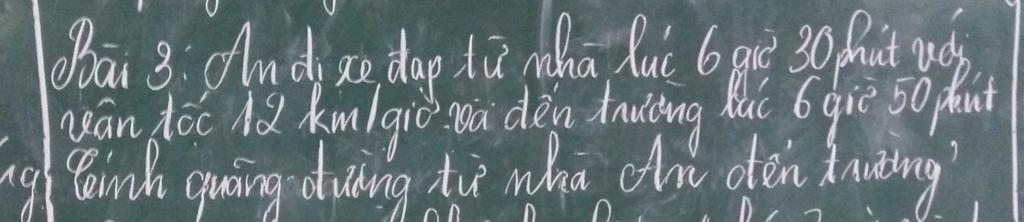 Bài 3: An đi xe đạp từ nhà lúc 6 giờ 30 phút với
vận tốc 12 km/giờ và đến trường lúc 6 giờ 50 phút
Tính quãng đường từ nhà An đến trường?